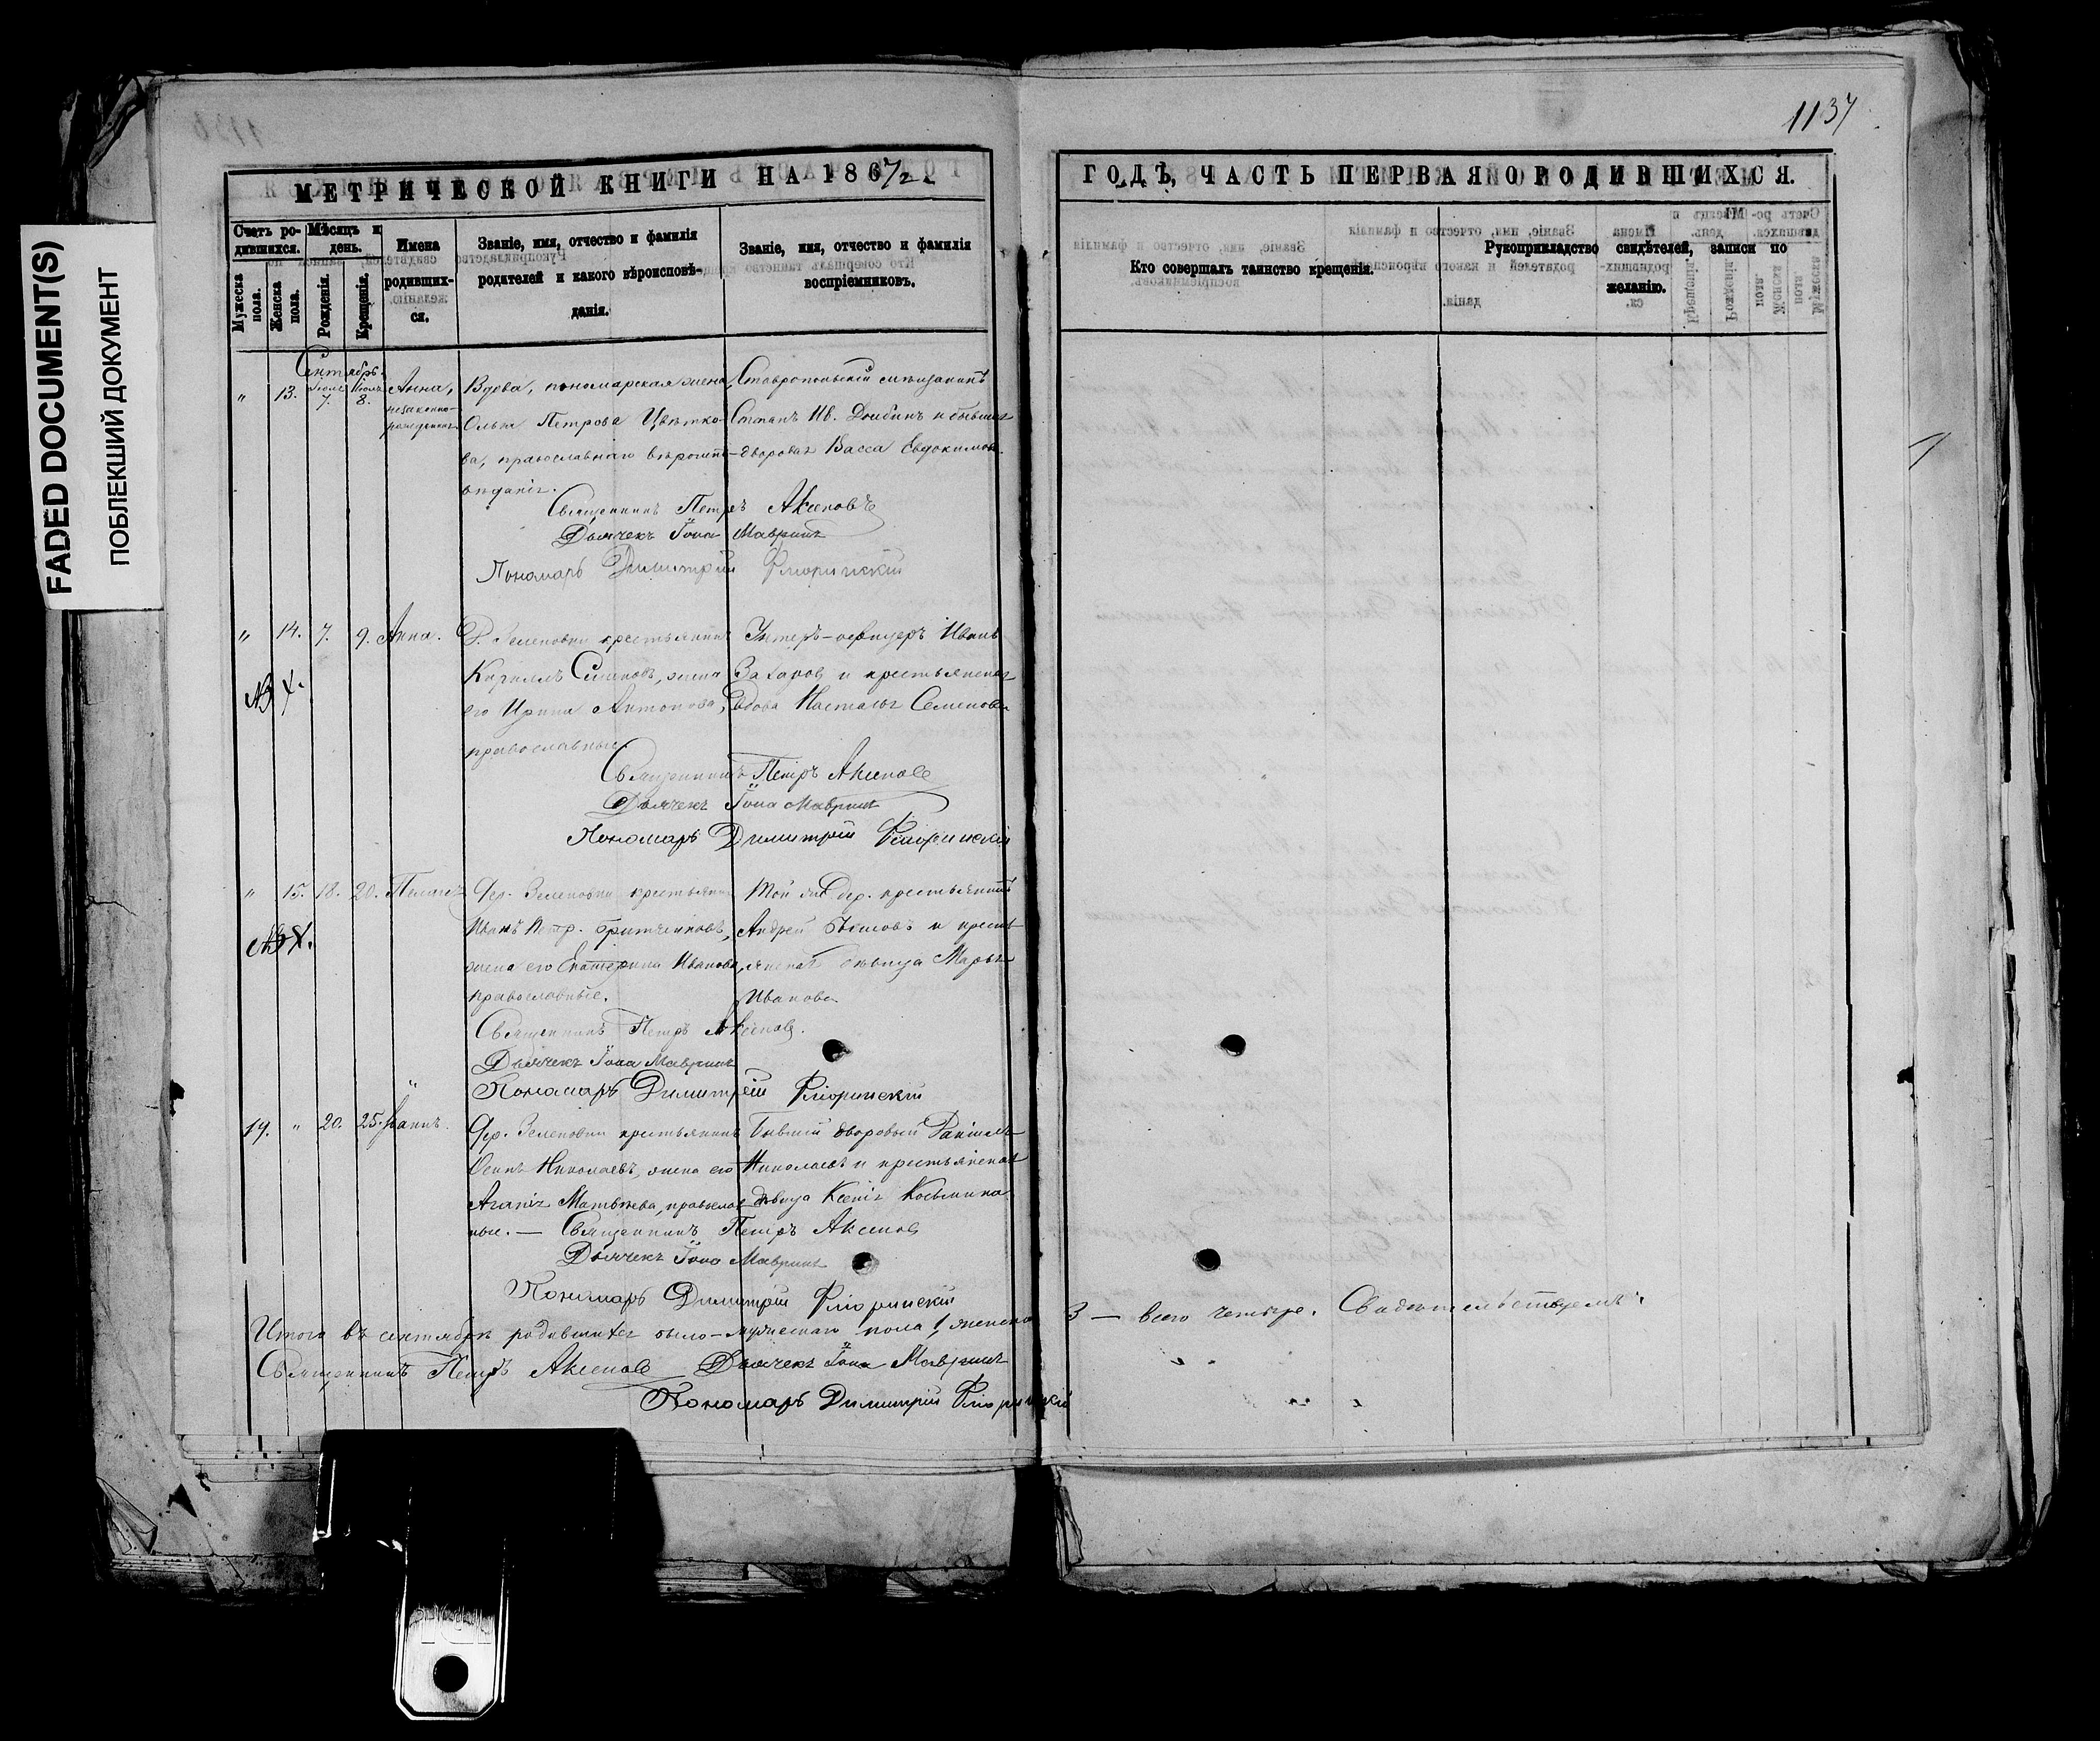 FADED DOCUMENT(S)
ПОБЛЕКШИЙ ДОКУМЕНТ
1137
МЕТРИЧЕСКОЙ КНИГИ НА 1867/2
Счетъ ро-
дившихся.
Мѣсяцъ и
день.
Мужеска
пола.
Женска
пола.
Рожденія.
Крещенія.
Имена
родивших-
ся.
Званіе, имя, отчество и фамилія
родителей и какого вѣроисповѣ-
данія.
Званіе, имя, отчество и фамилія
воспріемниковъ.
Сентябрь.
" 13. 7. 8. Анна, Вдова, пономарская жена Ставропольскій
незаконно- Ольга Петрова Цвѣтко- Ив. и бывшая
ва, православнаго вѣроиспо- дворовая Васса Евдокимова.
вѣданія.
Священникъ Петръ Аксеновъ
Дьячекъ Іона Мавринъ
Пономарь Димитрій Флоринскій
" 14. 7. 9. Анна. Д. Зеленовки крестьянинъ Унтеръ-офицеръ Иванъ
Кириллъ Семеновъ, жена Захаровъ и крестьянская
его Ирина Антонова, вдова Настасья Семенова
православные.
Священникъ Петръ Аксеновъ
Дьячекъ Іона Мавринъ
Пономарь Димитрій Флоринскій
" 15. 18. 20. Пелагея Дер. Зеленовки крестьянинъ Той же дер. крестьянинъ
Иванъ Петр. Андрей и кресть-
жена его Екатерина Иванова, янская дѣвица Марья
православные. Иванова
Священникъ Петръ Аксеновъ.
Дьячекъ Іона Мавринъ
Пономарь Димитрій Флоринскій
19. " 20. 25. Іоаннъ. Дер. Зеленовки крестьянинъ Бывшій дворовый Даніилъ
Осипъ Николаевъ, жена его Николаевъ и крестьянская
Агапія Матвѣева, православ- дѣвица Ксенія Козьмина
ные. — Священникъ Петръ Аксеновъ
Дьячекъ Іона Мавринъ
Пономарь Димитрій Флоринскій
Итого въ сентябрѣ родившихся было — мужескаго пола 1, женска
Священникъ Петръ Аксеновъ Дьячекъ Іона Мавринъ
Пономарь Димитрій Флоринскій
ГОДЪ, ЧАСТЬ ПЕРВАЯ О РОДИВШИХСЯ.
Кто совершалъ таинство крещенія.
Рукоприкладство свидѣтелей, записи по
желанію.
3 — всего четыре. Свидѣтельствуемъ: